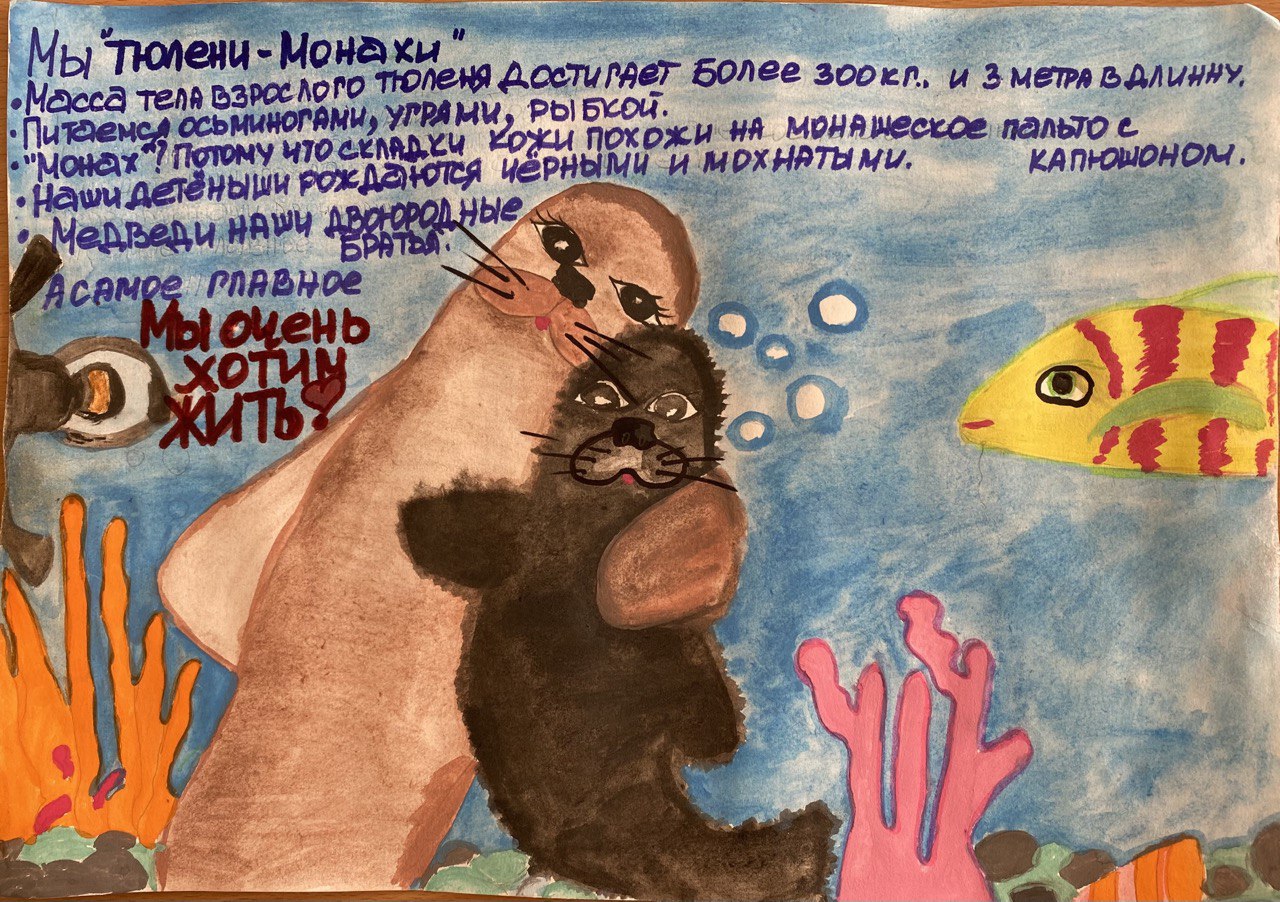 Мы "Тюлени-Монахи"
•Масса тела взрослого тюленя достигает более 300кг.. и 3 метра в длинну.
•Питаемся осьминогами, уграми, рыбкой.
•"Монах"? Потому что складки кожи похожи на монашеское пальто с
капюшоном.
•Наши детёныши рождаются чёрными и мохнатыми.
•Медведи наши двоюродные
братья.
А самое главное
Мы очень
хотим
жить!